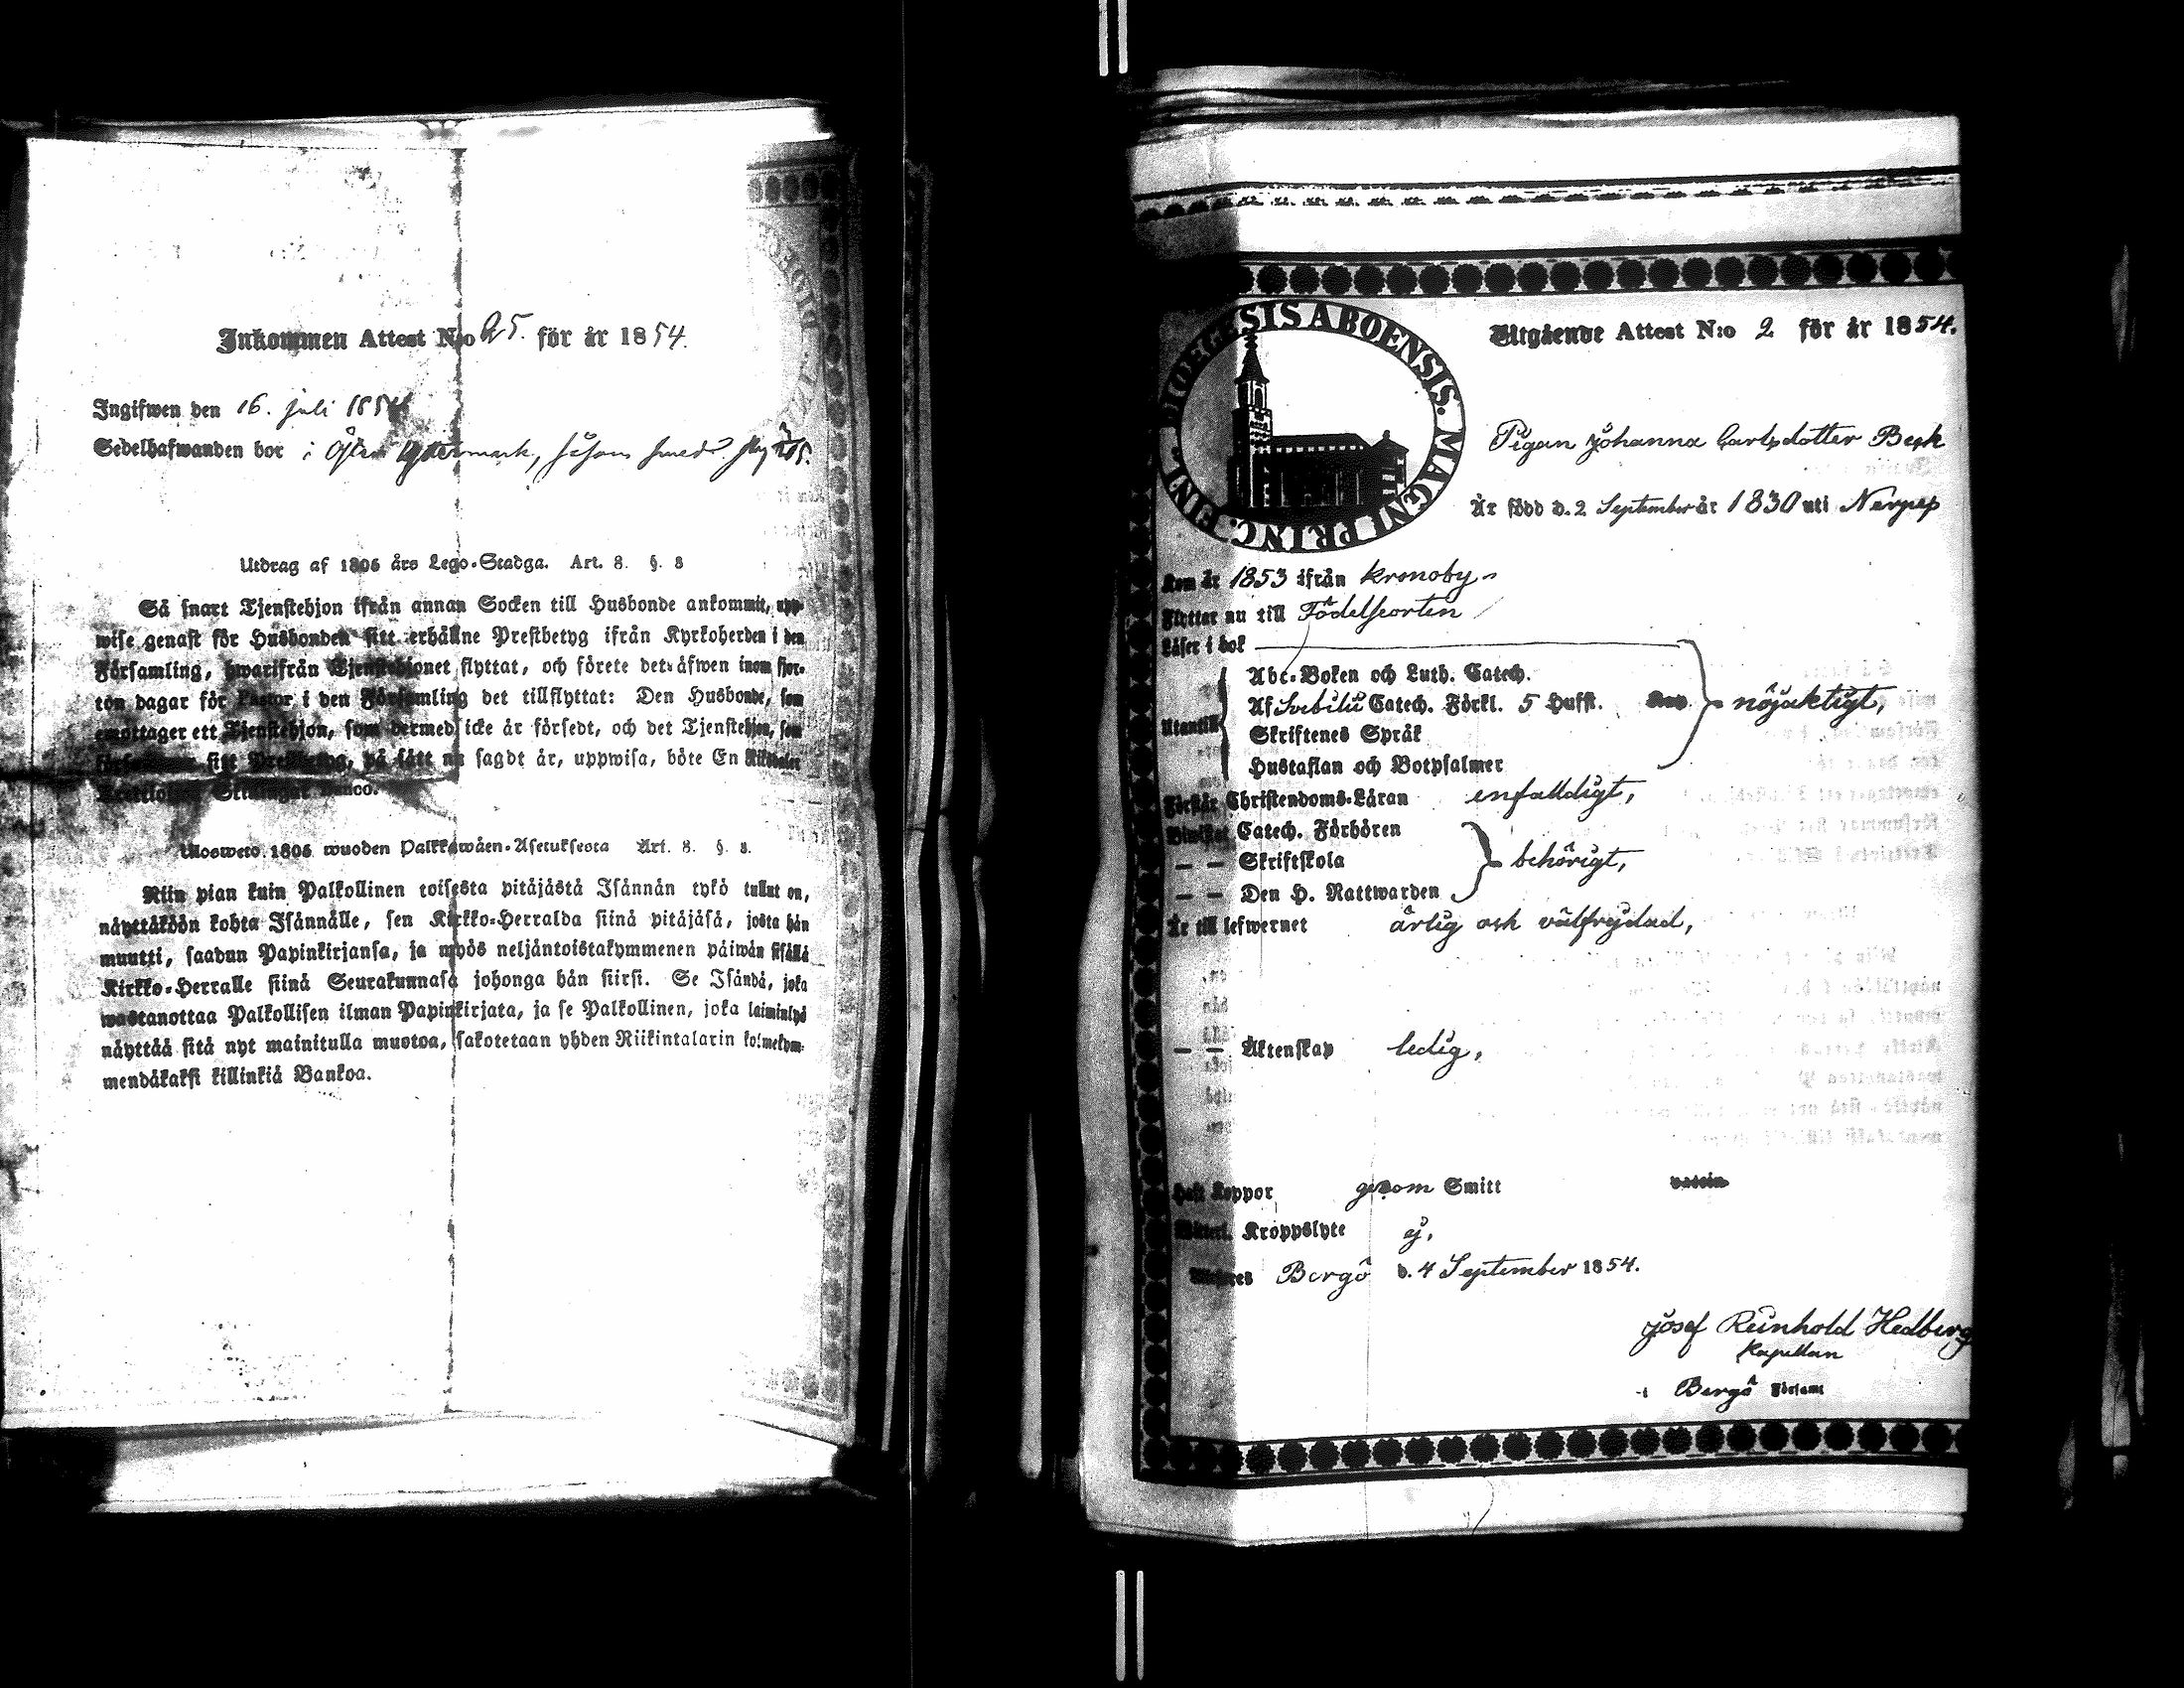 Inkommen Attest N:o 25. för år 1854.
Ingifwen den 16. juli 1854
Sedelhafwanden bor i Öster Yttermark,
Utdrag af 1805 års Lego-Stadga. Art. 8. §. 8
Så snart Tjenstehjon ifrån annan Socken till Husbonde ankommit, upp-
wise genast för Husbonden sitt erhållne Prestbetyg ifrån Kyrkoherden i den
Församling, hwarifrån Tjenstehjonet flyttat, och förete det åfwen inom fjor-
ton dagar för Pastor i den Församling det tillflyttat: Den Husbonde, som
emottager ett Tjenstehjon, som dermed icke är försedt, och det Tjenstehjon, som
försummar sitt Prestbetyg, på sätt nu sagdt är, uppwisa, böte En Riksdaler
Trettiotwå Skillingar Banco.
Ulosweto 1805 wuoden Palkkawäen-Asetuksesta Art. 8. §. 8.
Niin pian kuin Palkollinen toisesta pitäjästä Isännän tykö tullut on,
näyttäköön kohta Isännälle, sen Kirkko-Herralda siinä pitäjäsä, josta hän
muutti, saadun Papinkirjansa, ja myös neljäntoistakymmenen päiwän sisällä
Kirkko-Herralle siinä Seurakunnasa johonga hän siirsi. Se Isändä, joka
wastanottaa Palkollisen ilman Papinkirjata, ja se Palkollinen, joka laiminlyö
näyttää sitä nyt mainitulla muotoa, sakotetaan yhden Riikintalarin kolmekym-
mendäkaksi killinkiä Bankoa.
DIOECESIS ABOENSIS. MAGNI PRINC. FINL.
Utgående Attest N:o 2 för år 1854.
Pigan Johanna Carlsdotter Beck
Är född d. 2 September år 1830 uti Nerpes
Kom år 1853 ifrån Kronoby
Flyttar nu till Födelseorten
Läser i bok
Abc-Boken och Luth. Catech.
Utantill Af Svebilii Catech. Förkl. 5 Hufst. nöjaktigt,
Skriftenes Språk
Hustaflan och Botpsalmer
Förstår Christendoms-Läran enfaldigt,
Biwistat Catech. Förhören
— — Skriftskola behörigt,
— — Den H. Nattwarden
Är till lefwernet ärlig och välfrejdad,
— — Äktenskap ledig,
Haft Koppor genom Smitt
Kroppslyte ej,
Bergö d. 4 September 1854.
Josef Reinhold Hedberg
Kapellan
i Bergö Församl